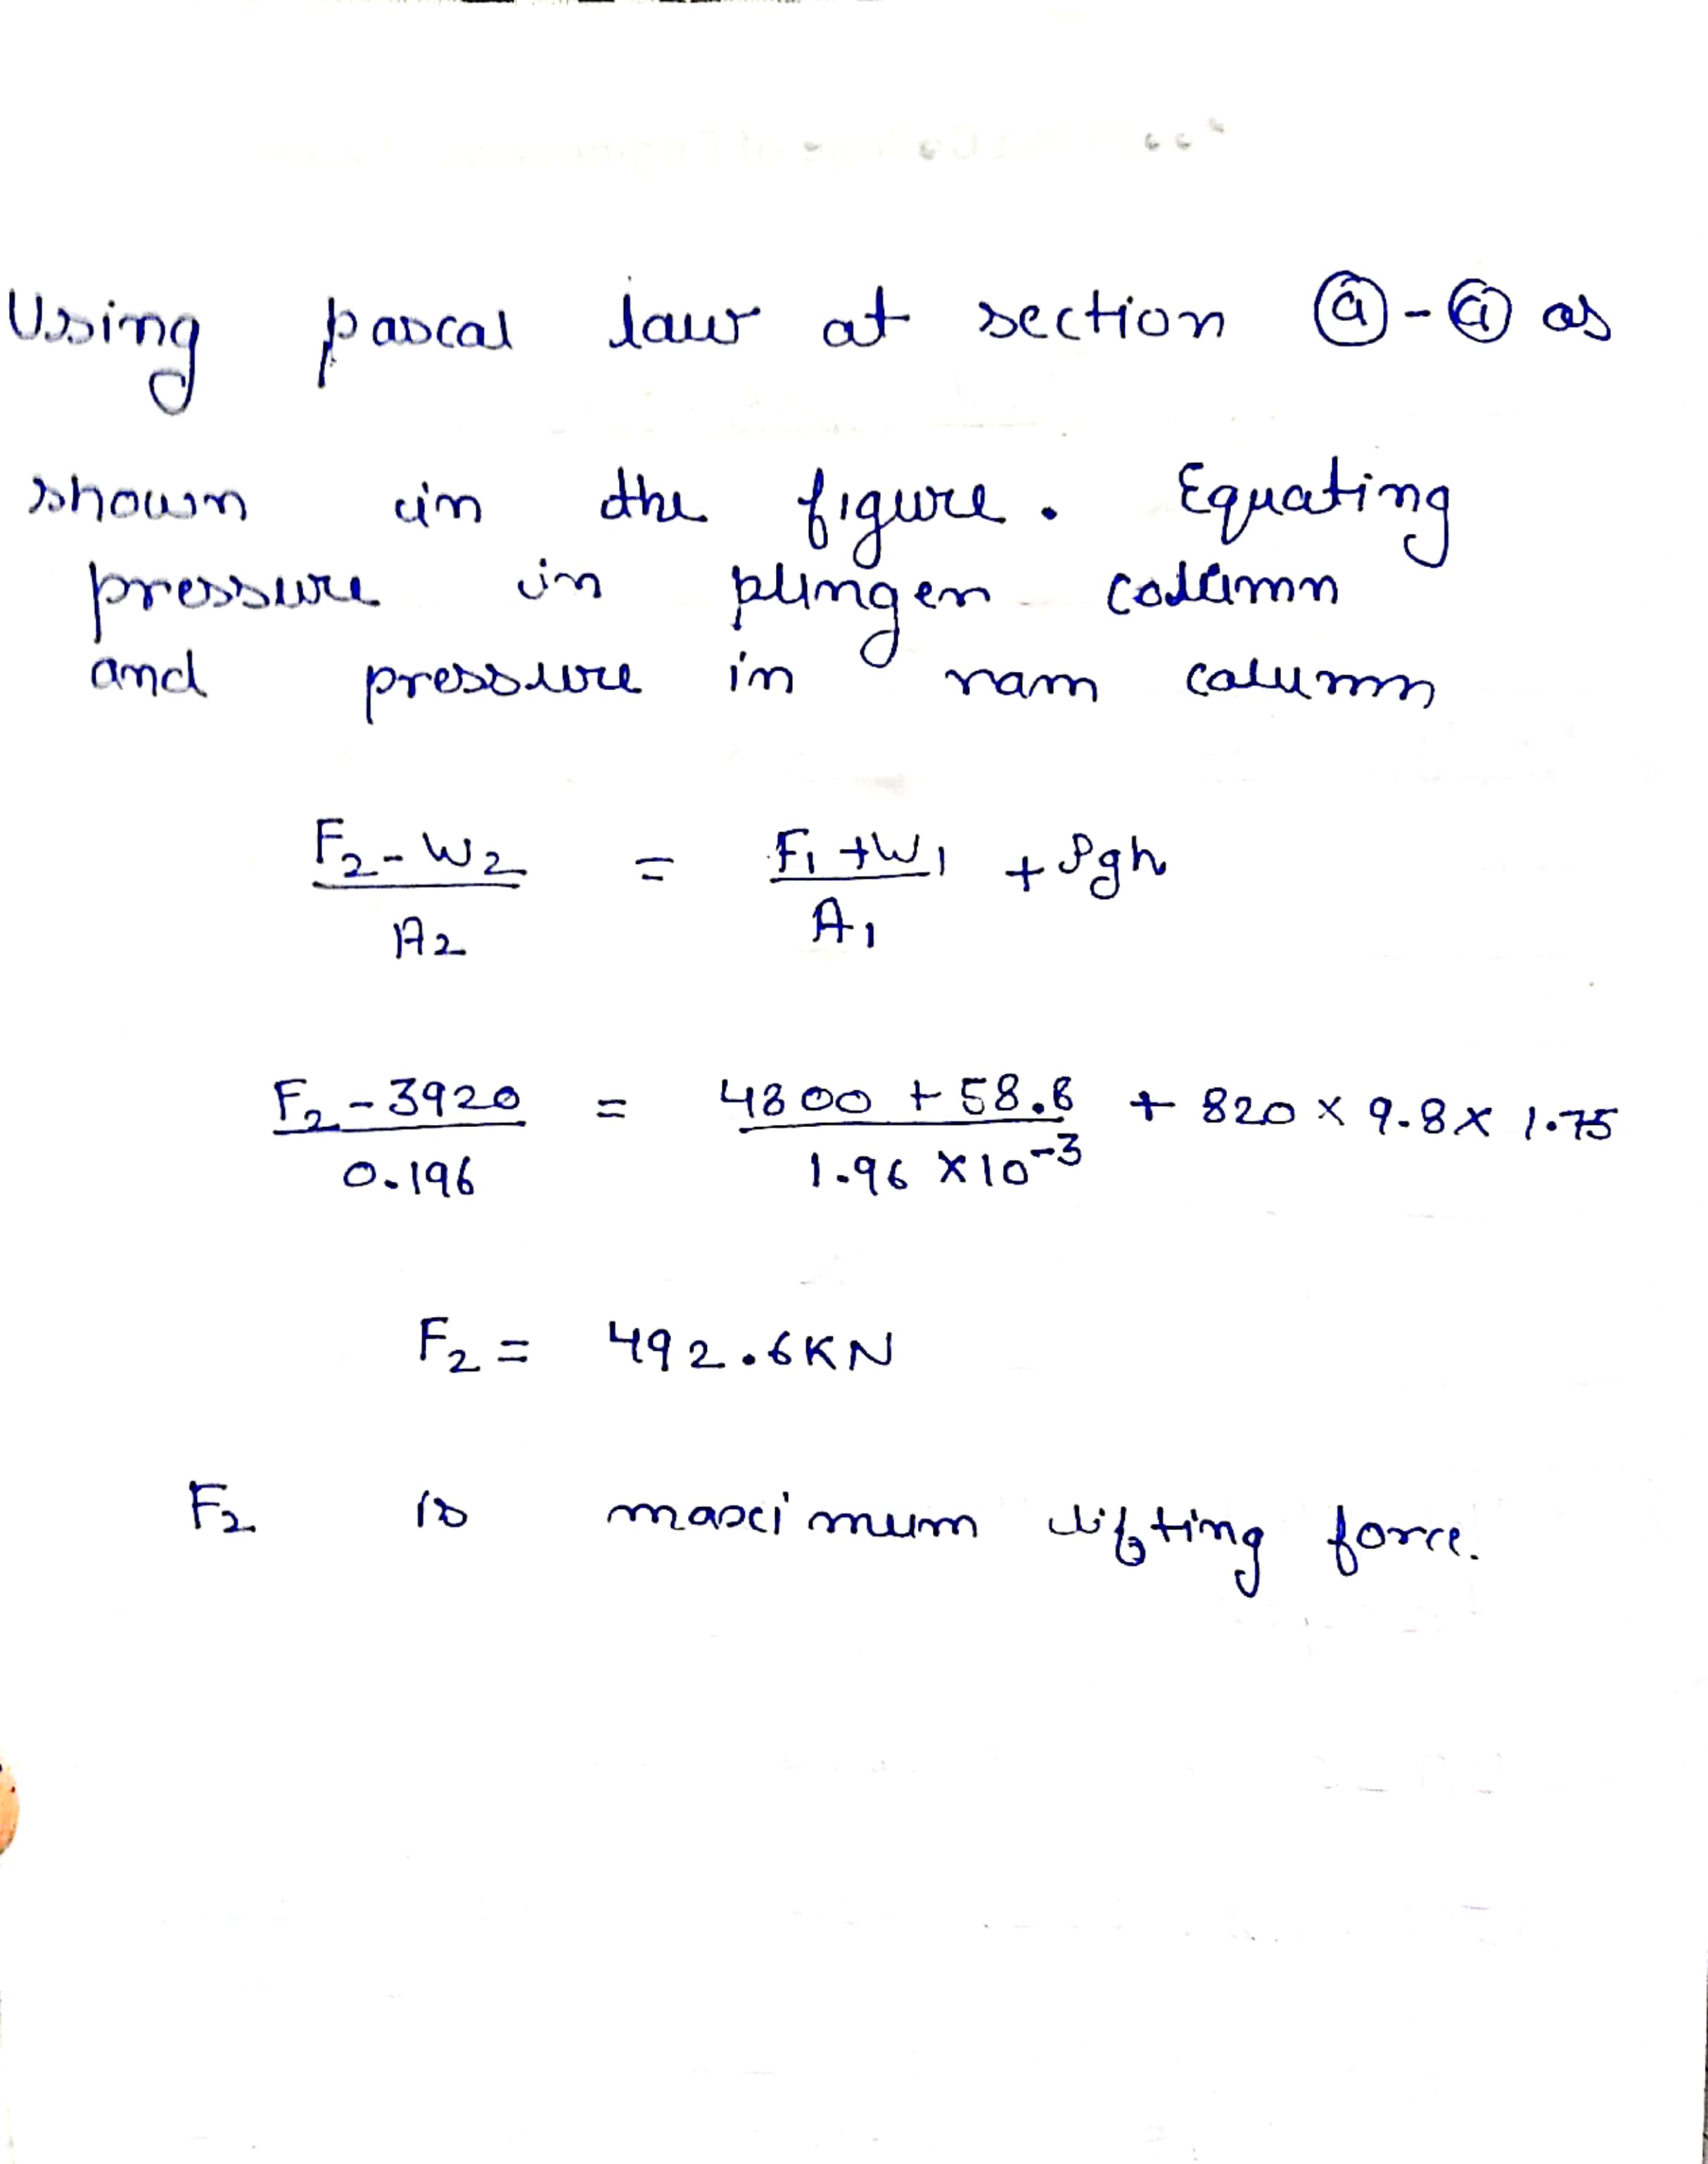 Using pascal law at section ⓐ-ⓐ as
shown in the figure. Equating
pressure in plunger column
and pressure in ram column
F₂-W₂/A₂ = F₁+W₁/A₁ + ρgh
F₂-3920/0.196 = 4800+58.8/1.96×10⁻³ + 820×9.8×1.75
F₂= 492.6KN
F₂ is maximum lifting force.